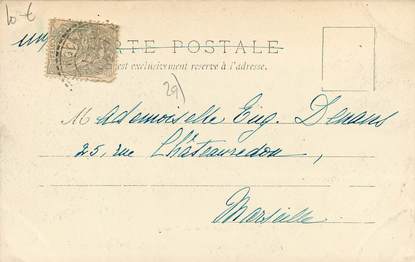 10 €
CARTE POSTALE
est exclusivement reservé à l'adresse.
29)
Mademoiselle Eug. Denans
25, rue Châteauredon,
Marseille